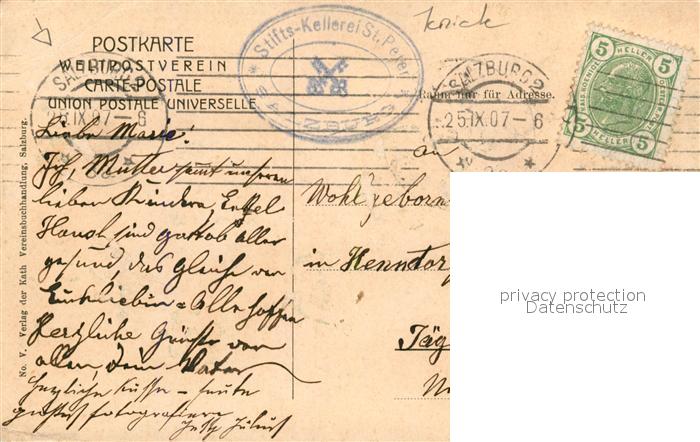 Knick
POSTKARTE
WELTPOSTVEREIN
CARTE POSTALE
UNION POSTALE UNIVERSELLE
Stifts-Kellerei St. Peter
* SALZBURG *
SALZBURG 2
25.IX.07-6
SALZBURG 2
25.IX.07-6
Raum nur für Adresse.
5 HELLER 5
5 HELLER 5
No. V. Verlag der Kath Vereinsbuchhandlung, Salzburg.
Liebe Marie!
Ich, Mutter samt unseren
lieben Kindern,
sind gottlob alle
gesund, das Gleiche von
Alle hoffen
Herzliche Grüsse von
allen, dein Vater
herzliche Küsse - heute
fotografieren
an
Wohlgeborn
in Henndor
Jäg
privacy protection
Datenschutz